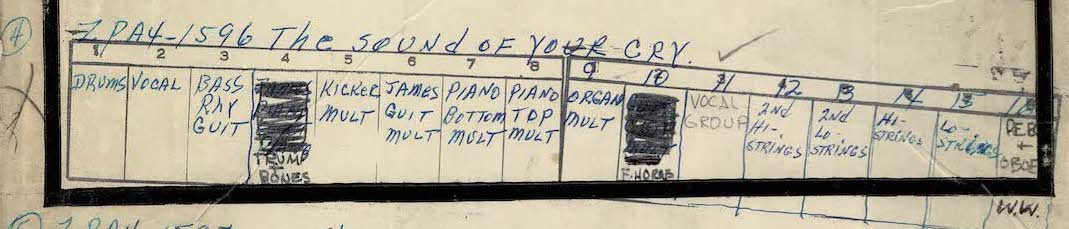 4
ZPA4-1596 The SOUND OF YOUR CRY.
1 2 3 4 5 6 7 8 9 10 11 12 13 14 15 16
DRUMS
VOCAL
BASS
RAY
GUIT
TRUMP
+
BONES
KICKER
MULT
JAMES
GUIT
MULT
PIANO
BOTTOM
MULT
PIANO
TOP
MULT
ORGAN
MULT
F. HORNS
VOCAL
GROUP
2nd
Hi-
STRINGS
2nd
LO-
STRINGS
Hi-
STRINGS
LO-
STRINGS
+
OBOE
W.W.